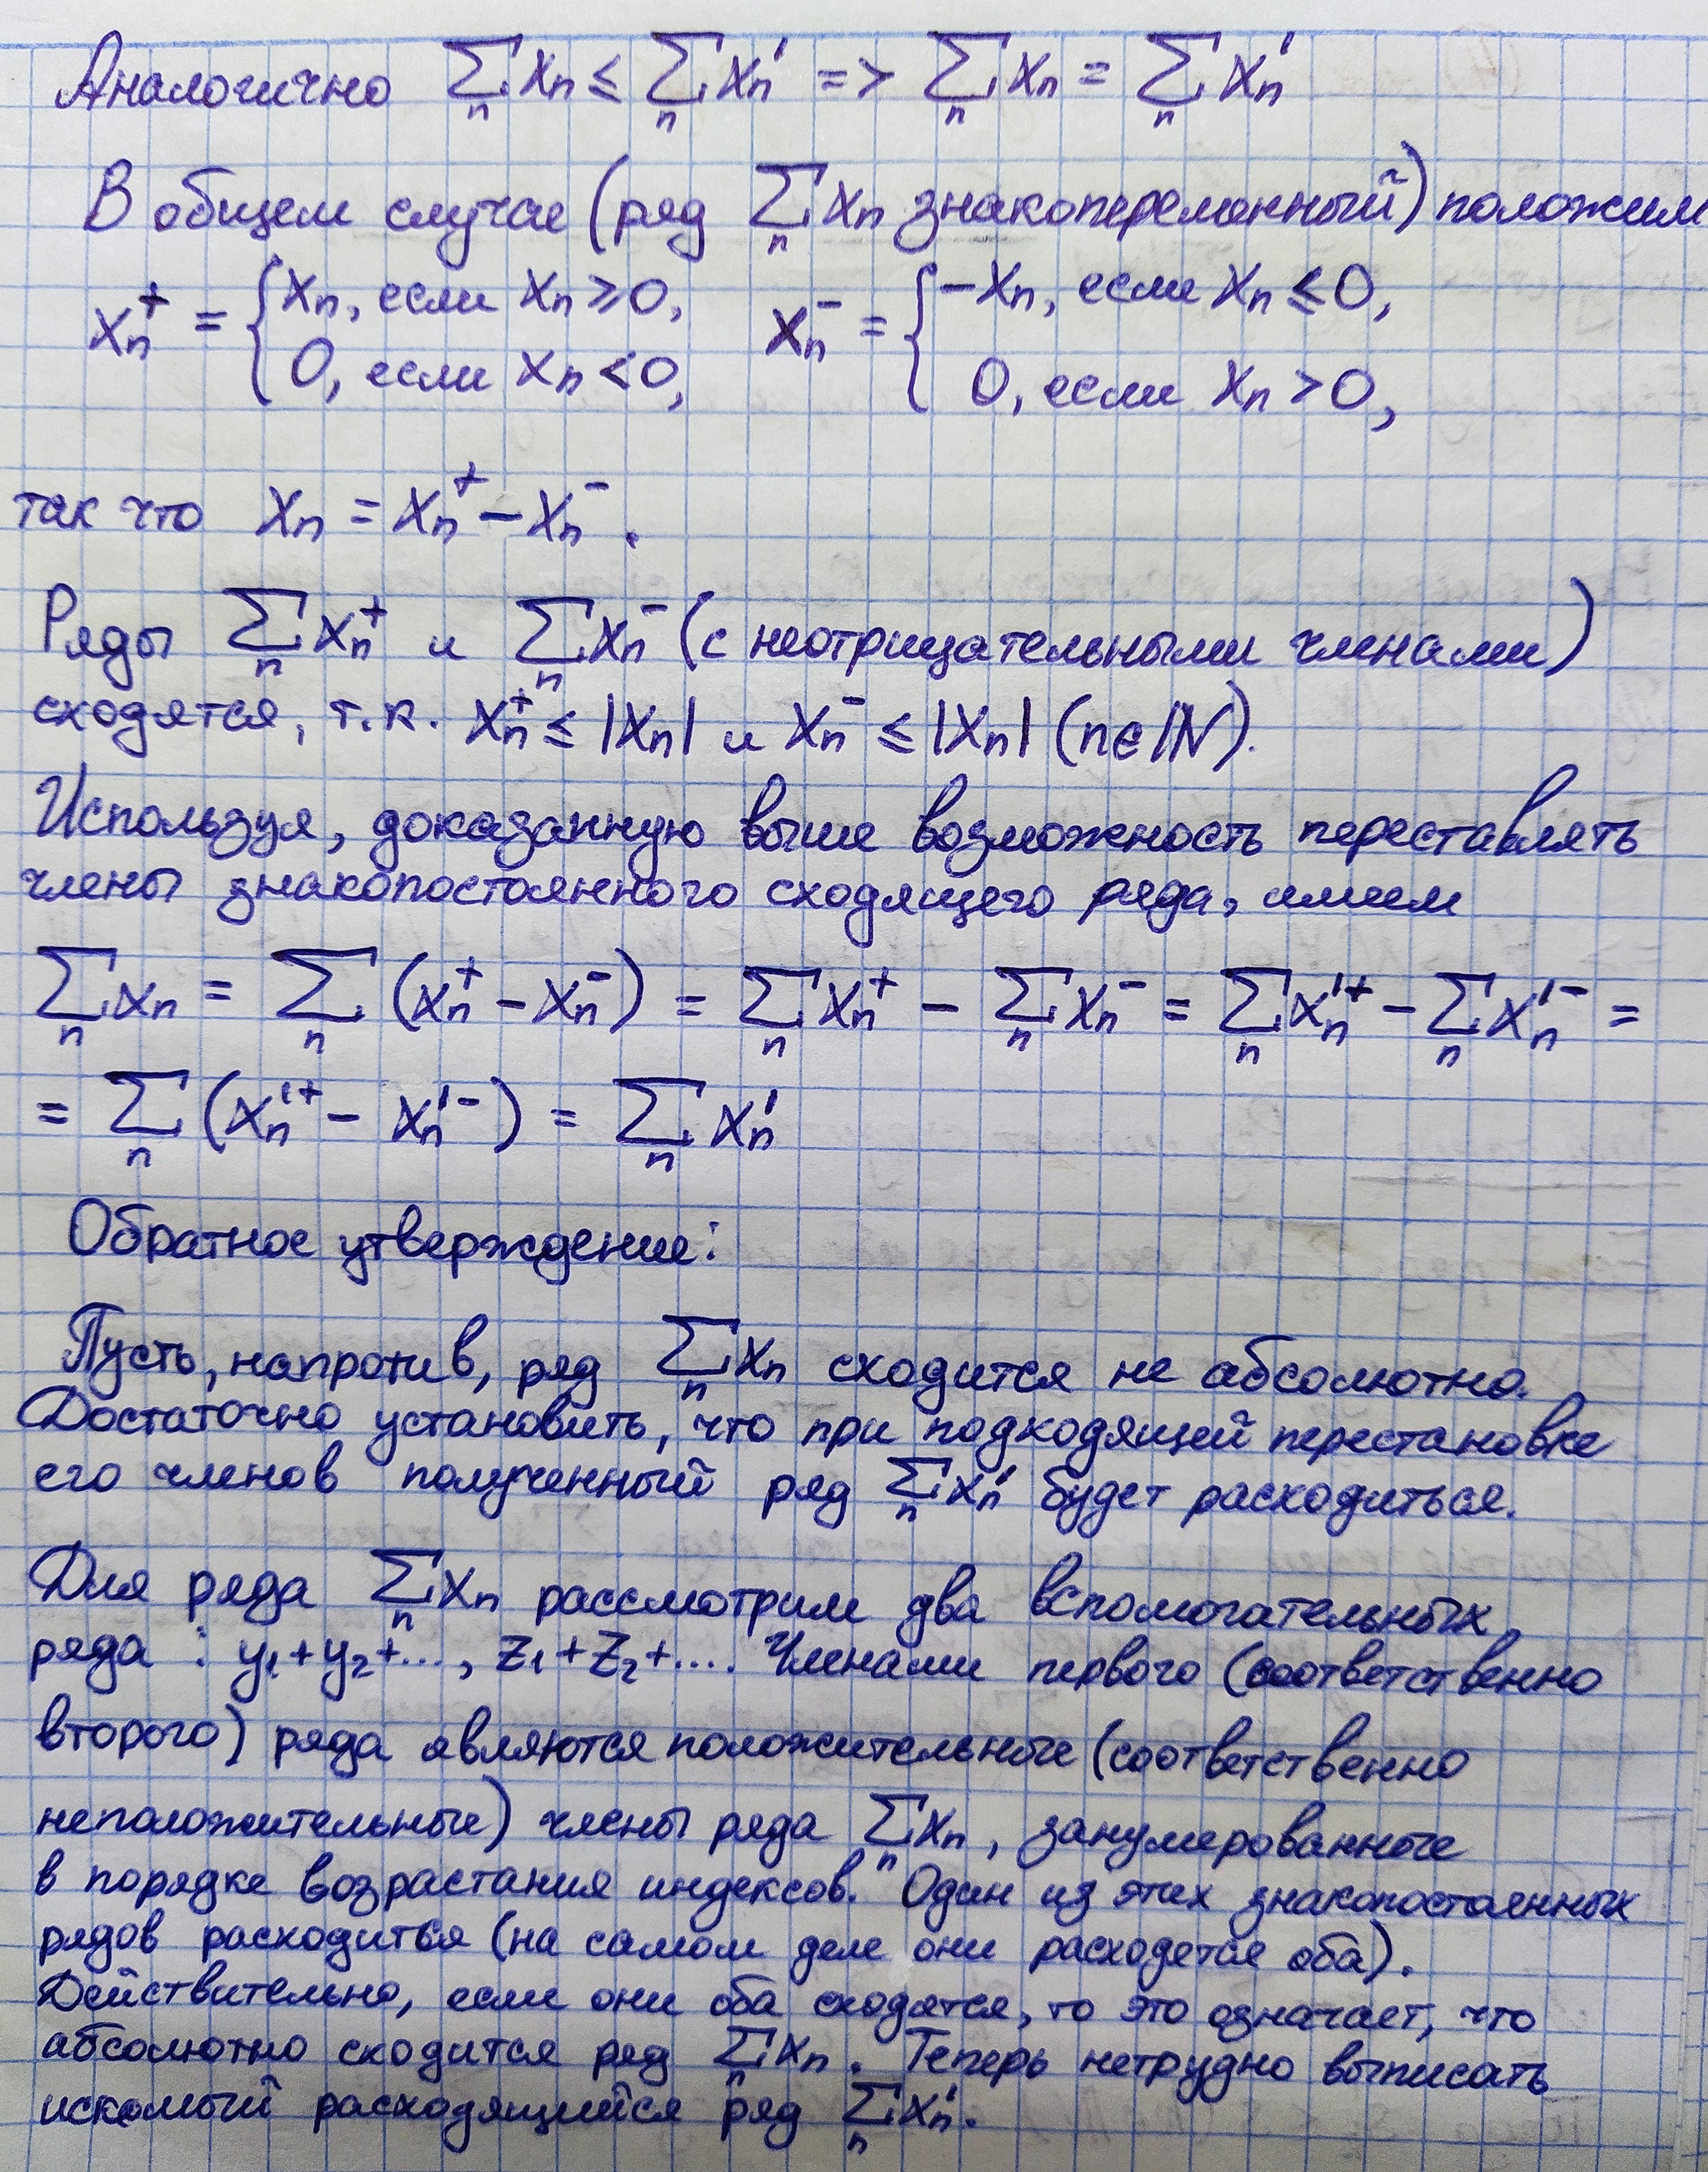 Аналогично ∑_n xₙ ≤ ∑_n xₙ' => ∑_n xₙ = ∑_n xₙ'
В общем случае (ряд ∑_n xₙ знакопеременный) положим
xₙ⁺ = { xₙ, если xₙ ≥ 0, 0, если xₙ < 0, xₙ⁻ = { -xₙ, если xₙ ≤ 0, 0, если xₙ > 0,
так что xₙ = xₙ⁺ - xₙ⁻.
Ряды ∑_n xₙ⁺ и ∑_n xₙ⁻ (с неотрицательными членами)
сходятся, т.к. xₙ⁺ ≤ |xₙ| и xₙ⁻ ≤ |xₙ| (n∈ℕ).
Используя, доказанную выше возможность переставлять
члены знакопостоянного сходящего ряда, имеем
∑_n xₙ = ∑_n (xₙ⁺ - xₙ⁻) = ∑_n xₙ⁺ - ∑_n xₙ⁻ = ∑_n xₙ'⁺ - ∑_n xₙ'⁻ =
= ∑_n (xₙ'⁺ - xₙ'⁻) = ∑_n xₙ'
Обратное утверждение:
Пусть, напротив, ряд ∑_n xₙ сходится не абсолютно.
Достаточно установить, что при подходящей перестановке
его членов полученный ряд ∑_n xₙ' будет расходиться.
Для ряда ∑_n xₙ рассмотрим два вспомогательных
ряда : y₁+y₂+..., z₁+z₂+.... Членами первого (соответственно
второго) ряда являются положительные (соответственно
неположительные) члены ряда ∑_n xₙ, занумерованные
в порядке возрастания индексов. Один из этих знакопостоянных
рядов расходиться (на самом деле они расходятся оба).
Действительно, если они оба сходятся, то это означает, что
абсолютно сходится ряд ∑_n xₙ. Теперь нетрудно выписать
искомый расходящийся ряд ∑_n xₙ'.